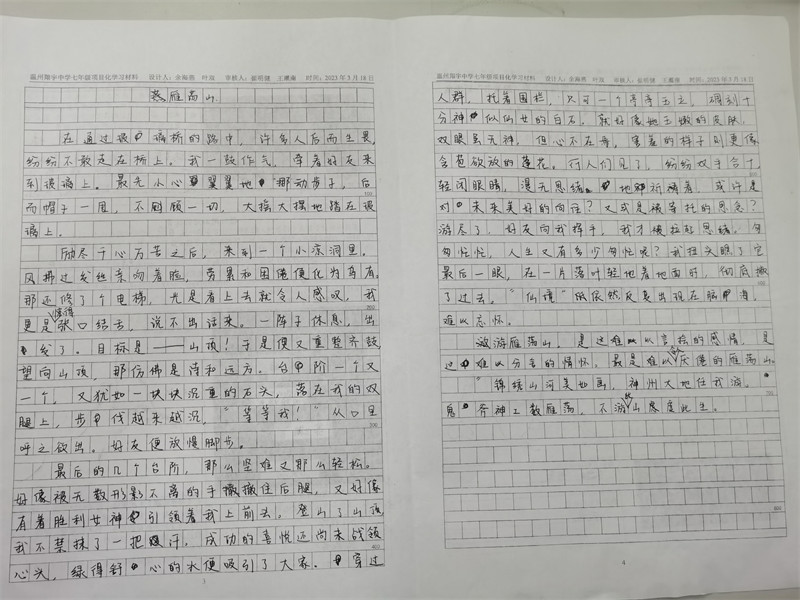 温州翔宇中学七年级项目化学习材料 设计人：余海燕 叶琼 审核人：翟明健 王珊珊 时间：2023年3月18日
雁高山
在通过玻璃桥的路中，许多人后而生畏，
纷纷不敢走在桥上。我一鼓作气，牵着好友来
到玻璃上。最先小心翼翼地挪动步子，后
而帽子一甩，不顾一切，大摇大摆地踏在玻
璃上。
历尽千心万苦之后，来到一个小凉洞里。
风拂过发丝亲吻着脸，劳累和困倦便化为乌有。
那还修了个电梯，光是看上去就令人感叹，我
更是惊得张口结舌，说不出话来。一阵子休息，出
发了。目标是——山顶！于是便又重整齐鼓
望向山顶，那仿佛是诗和远方。台阶一个又
一个，又犹如一块块沉重的石头，落在我的双
腿上，步伐越来越沉，“等等我！”从口里
呼之欲出。好友便放慢脚步。
最后的几个台阶，那么坚难又那么轻松。
好像被无数形影不离的手撤撤住后腿，又好像
有着胜利女神引领着我上前去，登山了山顶
我不禁抹了一把汗。成功的喜悦还尚未战领
心头，绿得舒心的水便吸引了大家。穿过
3
温州翔宇中学七年级项目化学习材料 设计人：余海燕 叶琼 审核人：翟明健 王珊珊 时间：2023年3月18日
人群，托着围栏，只可一个亭亭玉立。碉到十
分神似仙女的白石，就好像她玉嫩的皮肤，
双眼虽无神，但心不在焉，害羞的样子则更像
含苞欲放的莲花。行人们见了，纷纷双手合十，
轻闭眼睛，漫无思绪地祈祷着，或许是
对未来美好的向往？又或是被寄托的思念？
游尽了，好友向我挥手，我才被拉起思绪。匆
匆忙忙，人生又有多少匆忙呢？我抬头眼了它
最后一眼，在一片落叶轻地着地面时，彻底撤
了过去。“仙境”依依然反复出现在脑海，
难以忘怀。
游雁荡山。是这难以言绘的感情，是
这难以分舍的情怀，最是难以厌倦的雁荡山。
“锦绣山河美如画，神州大地任我游。
鬼斧神工数雁荡，不游此山枉度此生。
4